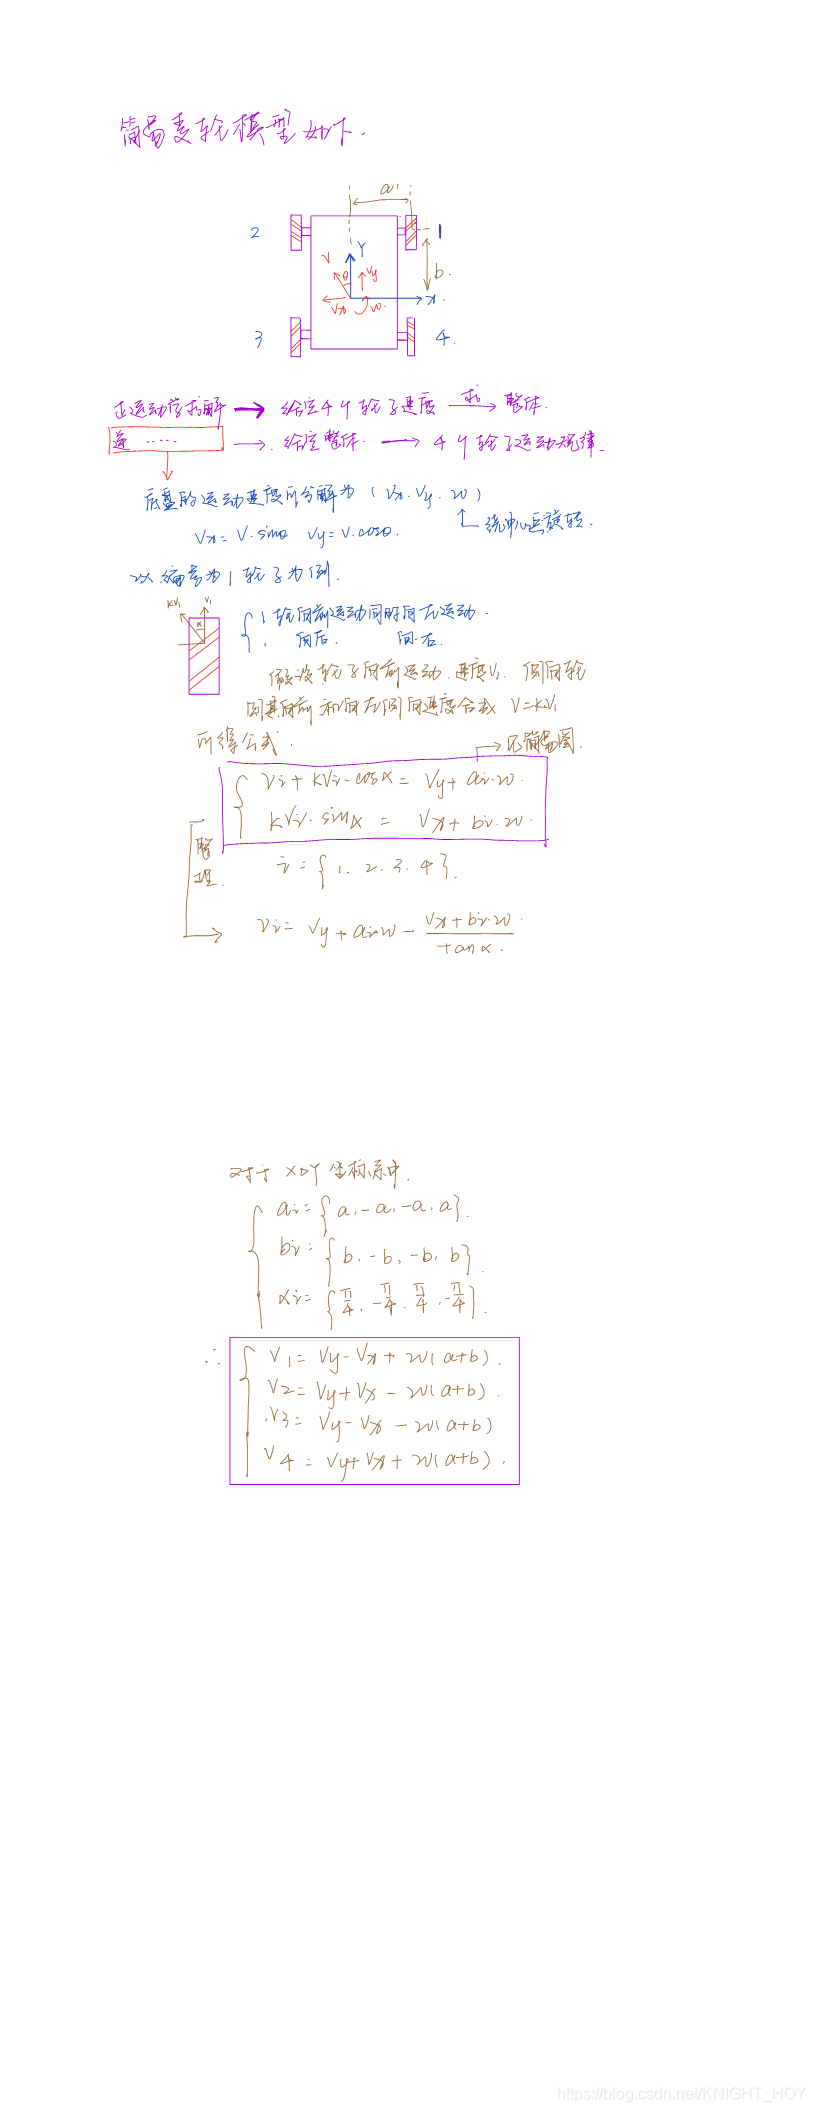 简易麦轮模型如下.
a
2
1
Y
V
θ
Vy
b.
x.
Vx
w.
3
4.
正运动学求解 → 给定4个轮子速度 求→ 整体.
逆 ..... → 给定整体. → 4个轮子运动规律.
底盘的运动速度可分解为 (Vx.Vy.w)
Vx=V·sinθ Vy=V·cosθ.
↑绕中心点旋转.
以编号为1轮子为例.
KV₁ V₁
α
{ 1轮向前运动同时向左运动.
向后. 向右.
假设轮子向前运动.速度V₁. 侧向轮
因其向前和向左侧向速度合成 V=KV₁
所得公式.
→见简易图.
{ Vi+KVi·cosα = Vy+ai·w.
KVi·sinα = Vx+bi·w.
整理.
i={1.2.3.4}.
→ Vi= Vy+ai·w - (Vx+bi·w)/tanα.
对于XOY坐标系中.
{ ai={a,-a,-a,a}.
bi={b,-b,-b,b}.
αi={π/4,-π/4,π/4,-π/4}.
∴ { V1=Vy-Vx+w(a+b).
V2=Vy+Vx-w(a+b).
V3=Vy-Vx-w(a+b)
V4=Vy+Vx+w(a+b).
https://blog.csdn.net/KNIGHT_HOY